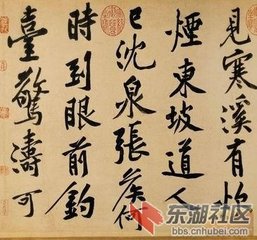 見寒溪有炊
煙東坡道人
已沈泉張侯何
時到眼前釣
臺驚濤可
东湖社区
bbs.cnhubei.com